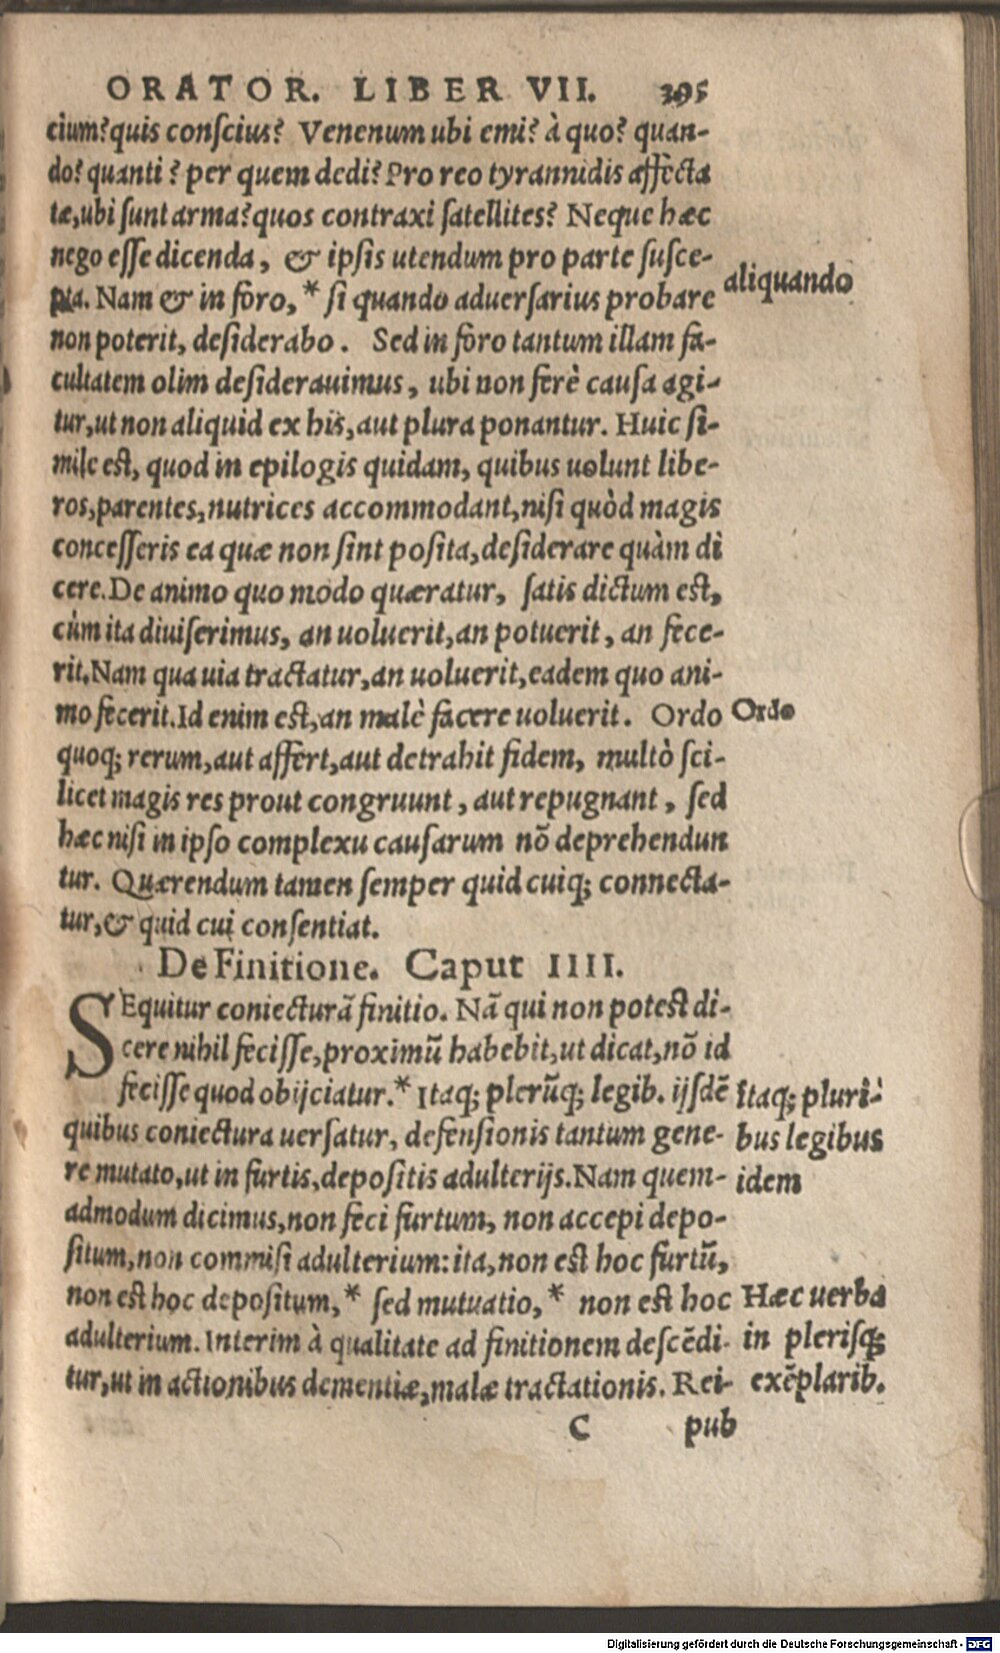 ORATOR. LIBER VII. 395
cium? quis conscius? Venenum ubi emi? à quo? quan-
do? quanti? per quem dedi? Pro reo tyrannidis affecta
tæ, ubi sunt arma? quos contraxi satellites? Neque hæc
nego esse dicenda, & ipsis utendum pro parte susce-
pta. Nam & in foro, * si quando aduersarius probare
aliquando
non poterit, desiderabo. Sed in foro tantum illam fa-
cultatem olim desiderauimus, ubi non ferè causa agi-
tur, ut non aliquid ex his, aut plura ponantur. Huic si-
mile est, quod in epilogis quidam, quibus uolunt libe-
ros, parentes, nutrices accommodant, nisi quòd magis
concesseris ea quæ non sint posita, desiderare quàm di
cere. De animo quo modo quæratur, satis dictum est,
cùm ita diuiserimus, an uoluerit, an potuerit, an fece-
rit. Nam qua uia tractatur, an uoluerit, eadem quo ani-
mo fecerit. Id enim est, an malè facere uoluerit. Ordo
Ordo
quoq; rerum, aut affert, aut detrahit fidem, multò sci-
licet magis res prout congruunt, aut repugnant, sed
hæc nisi in ipso complexu causarum nō deprehendun
tur. Quærendum tamen semper quid cuiq; connecta-
tur, & quid cui consentiat.
De Finitione. Caput IIII.
SEquitur coniecturā finitio. Nā qui non potest di-
cere nihil fecisse, proximū habebit, ut dicat, nō id
fecisse quod obijciatur. * Itaq; plerūq; legib. ijsdē
Itaq; pluri-
quibus coniectura uersatur, defensionis tantum gene-
bus legibus
re mutato, ut in furtis, depositis adulterijs. Nam quem-
idem
admodum dicimus, non feci furtum, non accepi depo-
situm, non commisi adulterium: ita, non est hoc furtū,
non est hoc depositum, * sed mutuatio, * non est hoc
Hæc uerba
adulterium. Interim à qualitate ad finitionem descēdi-
in plerisq;
tur, ut in actionibus dementiæ, malæ tractationis. Rei-
exēplarib.
C pub
Digitalisierung gefördert durch die Deutsche Forschungsgemeinschaft - DFG